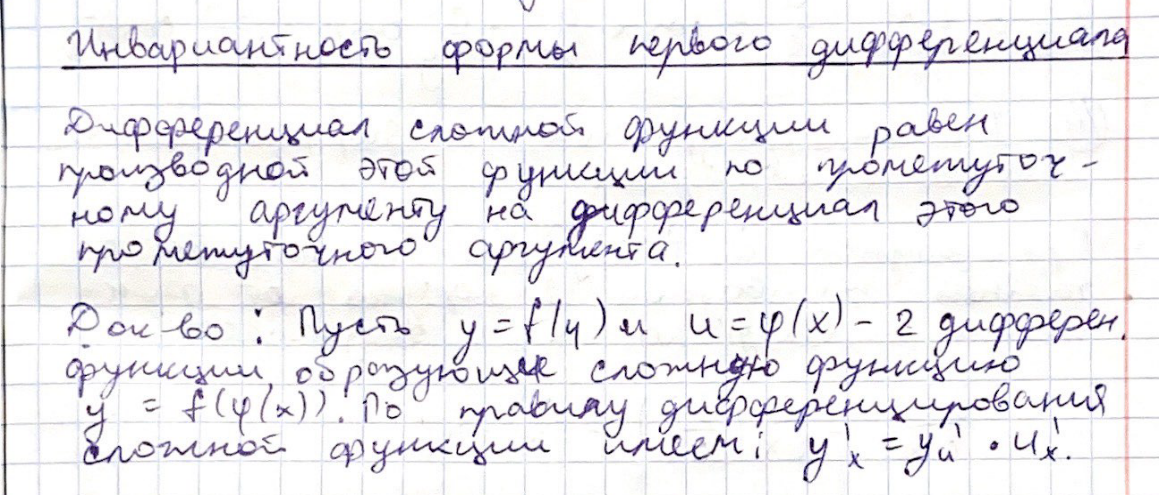 Инвариантность формы первого дифференциала
Дифференциал сложной функции равен
производной этой функции по промежуточ-
ному аргументу на дифференциал этого
промежуточного аргумента.
Док-во: Пусть y = f(u) и u = φ(x) – 2 дифферен.
функции, образующие сложную функцию
y = f(φ(x)). По правилу дифференцирования
сложной функции имеем: y'ₓ = y'ᵤ · u'ₓ.